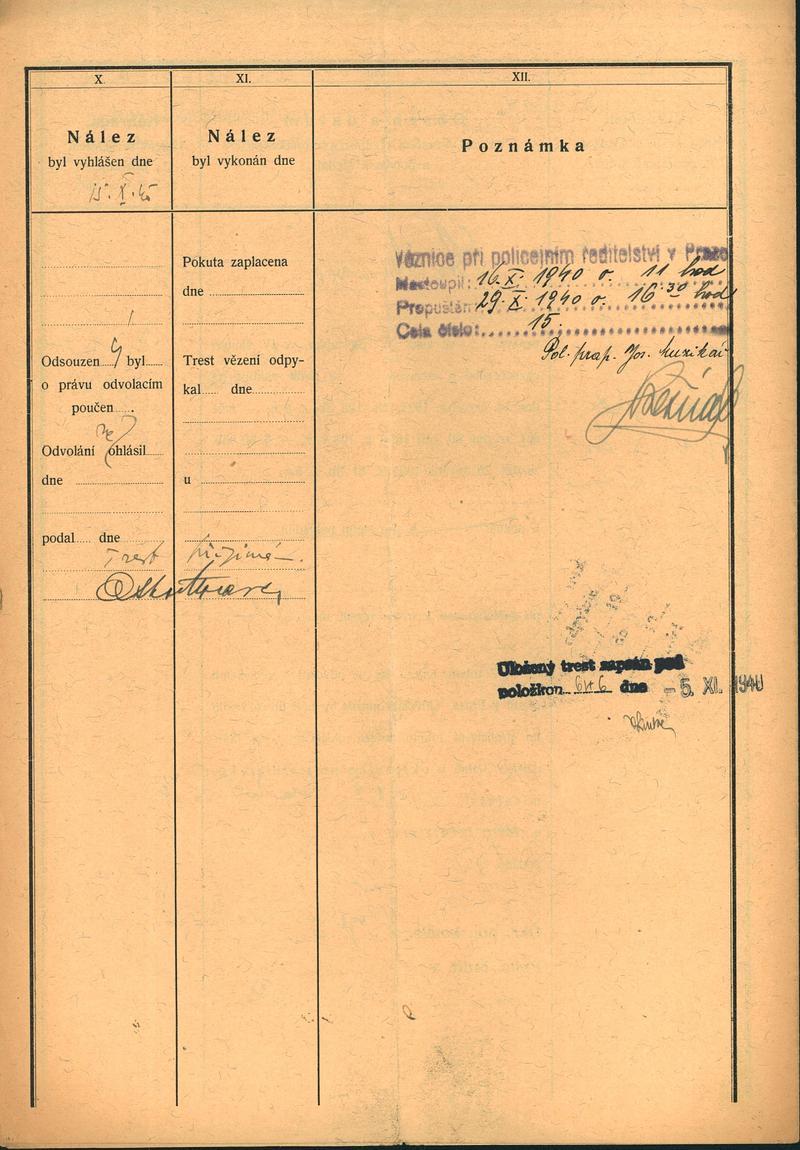 X.
Nález
byl vyhlášen dne
15. X. 40
Odsouzen byl
o právu odvolacím
poučen
ne
Odvolání ohlásil
dne
podal dne
Trest přijímá
XI.
Nález
byl vykonán dne
Pokuta zaplacena
dne
Trest vězení odpy-
kal dne
u
XII.
Poznámka
Věznice při policejním ředitelství v Praze
Nastoupil: 16. X. 1940 o. 11 hod
Propuštěn: 29. X. 1940 o. 16 30 hod
Cela číslo: 15.
Pol. prap. Jos. Muzikář
Uložený trest zapsán pod
položkou 646 dne - 5. XI. 1940